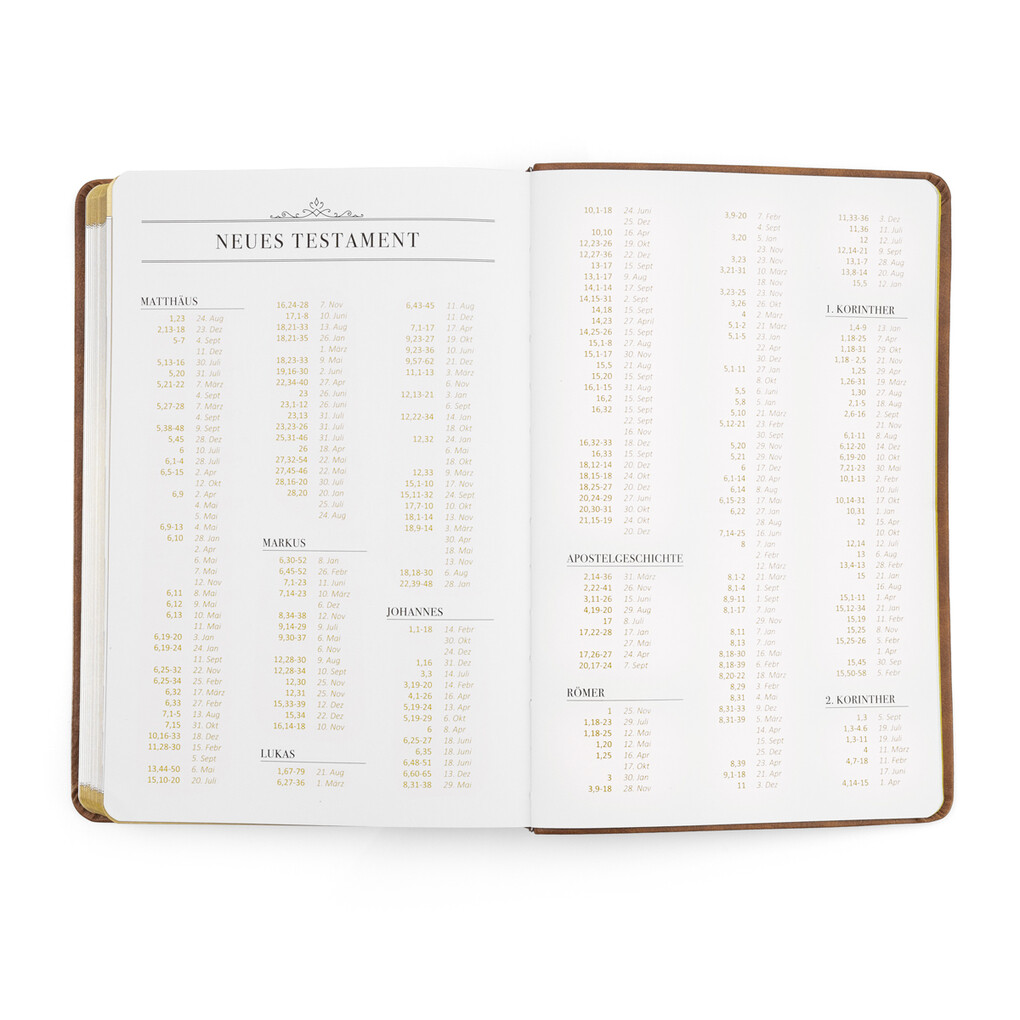 NEUES TESTAMENT
MATTHÄUS
1,23 24. Aug
2,13-18 23. Dez
5-7 4. Sept
11. Dez
5,13-16 30. Juli
5,20 31. Juli
5,21-22 7. März
4. Sept
5,27-28 7. März
4. Sept
5,38-48 9. Sept
5,45 28. Dez
6 10. Juli
6,1-4 28. Juli
6,5-15 2. Apr
12. Okt
6,9 2. Apr
4. Mai
5. Mai
6,9-13 4. Mai
6,10 28. Jan
2. Apr
6. Mai
7. Mai
12. Nov
6,11 8. Mai
6,12 9. Mai
6,13 10. Mai
11. Mai
6,19-20 3. Jan
6,19-24 24. Jan
11. Sept
6,25-32 22. Nov
6,25-34 25. Febr
6,32 17. März
6,33 27. Febr
7,1-5 13. Aug
7,15 31. Okt
10,16-33 18. Dez
11,28-30 15. Febr
5. Sept
13,44-50 6. Mai
15,10-20 20. Juli
16,24-28 7. Nov
17,1-8 10. Juni
18,21-33 13. Aug
18,21-35 26. Jan
1. März
18,23-33 9. Mai
19,16-30 2. Juni
22,34-40 27. Apr
23 26. Juni
23,1-12 26. Juni
23,13 31. Juli
23,23-26 31. Juli
25,31-46 31. Juli
26 18. Apr
27,32-54 22. Mai
27,45-46 22. Mai
28,16-20 30. Juli
28,20 20. Jan
25. Juli
24. Aug
MARKUS
6,30-52 8. Jan
6,45-52 26. Febr
7,1-23 11. Juni
7,14-23 10. März
6. Dez
8,34-38 12. Nov
9,14-29 9. Juli
9,30-37 6. Mai
6. Nov
12,28-30 9. Aug
12,28-34 10. Sept
12,30 25. Nov
12,31 25. Nov
15,33-39 12. Dez
15,34 22. Dez
16,14-18 10. Nov
LUKAS
1,67-79 21. Aug
6,27-36 1. März
6,43-45 11. Aug
11. Dez
7,1-17 17. Apr
9,23-27 19. Okt
9,23-36 10. Juni
9,57-62 21. Dez
11,1-13 3. März
6. Nov
12,13-21 3. Jan
6. Sept
12,22-34 14. Jan
18. Okt
12,32 24. Jan
6. Mai
18. Okt
12,33 9. März
15,1-10 17. Nov
15,11-32 24. Sept
17,7-10 10. Okt
18,1-14 13. Nov
18,9-14 3. März
30. Apr
18. Mai
13. Nov
18,18-30 6. Aug
22,39-48 28. Jan
JOHANNES
1,1-18 14. Febr
30. Okt
24. Dez
1,16 31. Dez
3,3 14. Juli
3,19-20 14. Febr
4,1-26 16. Apr
5,19-24 13. Apr
5,19-29 6. Okt
6 8. Apr
6,25-27 18. Juni
6,35 18. Juni
6,48-51 18. Juni
6,60-65 13. Dez
8,31-38 29. Mai
10,1-18 24. Juni
25. Dez
10,10 16. Apr
12,23-26 19. Okt
12,27-36 22. Dez
13-17 15. Sept
13,1-17 9. Aug
14,1-14 17. Sept
14,15-31 2. Sept
14,18 15. Sept
14,23 27. April
14,25-26 15. Sept
15,1-8 27. Aug
15,1-17 30. Nov
15,5 21. Aug
15,20 15. Sept
16,1-15 31. Aug
16,2 15. Sept
16,32 15. Sept
22. Sept
16. Nov
16,32-33 18. Dez
16,33 15. Sept
18,12-14 20. Dez
18,15-18 24. Okt
18,25-27 20. Dez
20,24-29 27. Juni
20,30-31 30. Okt
21,15-19 24. Okt
20. Dez
APOSTELGESCHICHTE
2,14-36 31. März
2,22-41 26. Nov
3,11-26 15. Juni
4,19-20 29. Aug
17 8. Juli
17,22-28 17. Jan
27. Mai
17,26-27 24. Apr
20,17-24 7. Sept
RÖMER
1 25. Nov
1,18-23 29. Juli
1,18-25 12. Mai
1,20 12. Mai
1,25 16. Apr
17. Okt
3 30. Jan
3,9-18 28. Nov
3,9-20 7. Febr
4. Sept
3,20 5. Jan
23. Nov
3,23 23. Nov
3,21-31 10. März
18. Nov
3,23-25 23. Nov
3,26 26. Okt
4 2. März
5,1-2 21. März
5,1-5 23. Jan
22. Apr
30. Dez
5,1-11 27. Jan
8. Okt
5,5 6. Juni
5,8 5. Jan
5,10 21. März
5,12-21 23. Febr
30. Sept
5,20 29. Nov
5,21 29. Nov
6 17. Dez
6,1-14 20. Apr
6,14 8. Aug
6,15-23 17. Mai
6,22 27. Jan
28. Aug
7,14-25 16. Juni
8 7. Jan
2. Febr
12. März
8,1-2 21. März
8,1-4 1. Sept
8,9-11 1. Sept
8,1-17 7. Jan
29. Nov
8,11 7. Jan
8,13 7. Jan
8,18-30 16. Mai
8,18-39 6. Febr
8,20-22 18. März
8,29 3. Febr
8,31 4. Mai
8,31-33 9. Dez
8,31-39 5. März
14. Apr
15. Sept
25. Dez
8,39 23. Apr
9,1-18 21. Apr
11 3. Dez
11,33-36 3. Dez
11,36 11. Juli
12 12. Juli
12,14-21 9. Sept
13,1-7 28. Aug
13,8-14 20. Aug
15,5 12. Jan
1. KORINTHER
1,4-9 13. Jan
1,18-25 7. Apr
1,18-31 29. Okt
1,18 - 2,5 21. Nov
1,25 29. Apr
1,26-31 19. März
1,30 27. Aug
2,1-5 18. Aug
2,6-16 2. Sept
21. Nov
6,1-11 8. Aug
6,12-20 14. Dez
6,19-20 10. Okt
7,21-23 30. Mai
10,1-13 2. Febr
10. Juli
10,14-31 17. Okt
10,31 1. Jan
12 15. Apr
10. Okt
12,14 12. Juli
13 6. Aug
13,4-13 28. Febr
15 21. Jan
16. Aug
15,1-11 1. Apr
15,12-34 21. Jan
15,19 11. Febr
15,25 8. Nov
15,25-26 5. Febr
1. Apr
15,45 30. Sep
15,50-58 5. Febr
2. KORINTHER
1,3 5. Sept
1,3-4.6 19. Juli
1,3-11 19. Juli
4 11. März
4,7-18 11. Febr
17. Juni
4,14-15 1. Apr